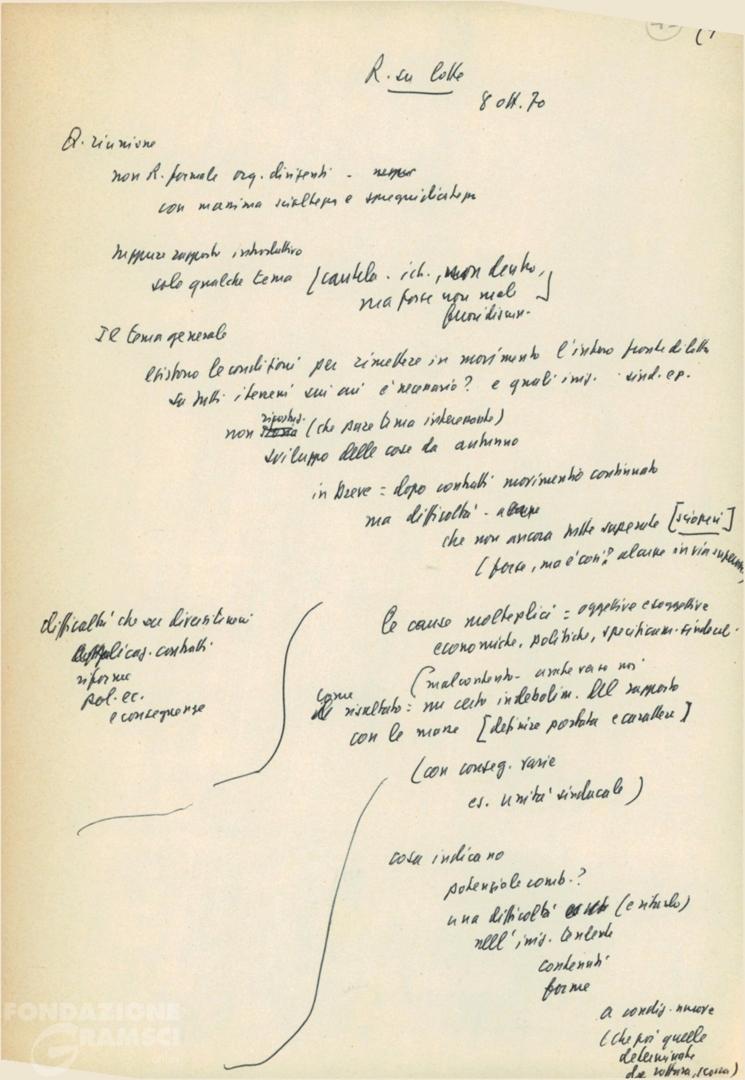 R. su lotte
8 ott. 70
Q. riunione
non R. formale org. dirigenti -
con massima scioltezza e spregiudicatezza
neppure rapporto introduttivo
solo qualche tema [cautela. ich., non dentro,
ma forse non male
fuori discuss.]
Il tema generale
esistono le condizioni per rimettere in movimento l'intero fronte di lotta
su tutti i terreni sui cui è necessario? e quali iniz. sind. ep.
non (che pure tema interessante)
sviluppo delle cose da autunno
in breve = dopo contratti movimento continuato
ma difficoltà -
che non ancora tutte superate [scioperi]
(forse, ma è così? alcune in via
difficoltà che su diversi temi
applicaz. contratti
riforme
pol. ec.
e conseguenze
le cause molteplici = oggettive e soggettive
economiche, politiche, specificam. sindacal.
(malcontento - anche verso noi
come risultato = un certo indebolim. del rapporto
con le masse [definire portata e carattere]
(con conseg. varie
es. unità sindacale)
cosa indicano
potenziale comb.?
una difficoltà (e ritardo)
nell'iniz.
contenuti
forme
a condiz. nuove
(che poi quelle
determinate
da rottura, scorsa)
FONDAZIONE
GRAMSCI